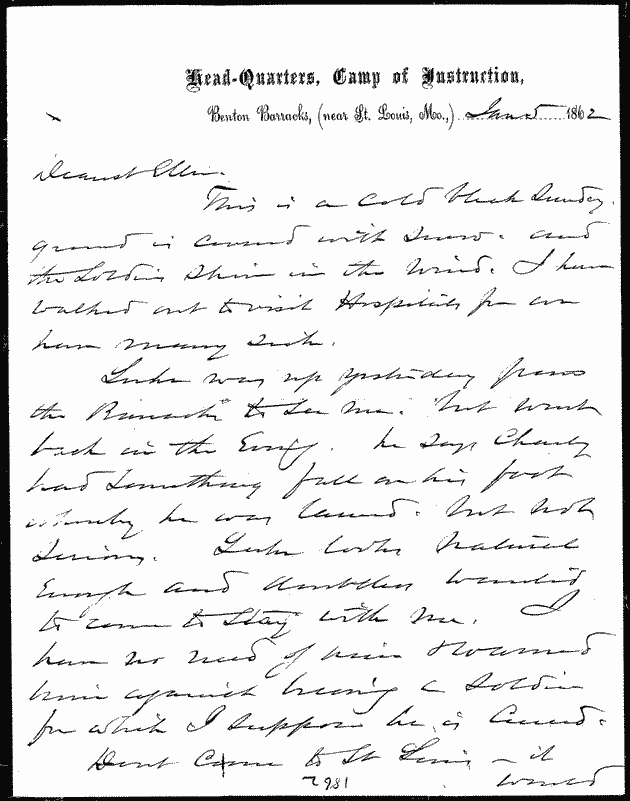 Head-Quarters, Camp of Instruction,
Benton Barracks, (near St. Louis, Mo.,) Jan 5 1862
Dearest Ellen.
This is a cold bleak Sunday.
ground is covered with snow. and
the Soldiers shiver in the wind. I have
walked out to visit Hospitals for we
have many sick.
Luke was up yesterday from
the Barracks to see me. but went
back in the Evng. he says Charley
had something fall on his foot
whereby he was lamed. but not
serious. Luke looks natural
Enough and doubtless wanted
to come to stay with me. I
have no need of him & warned
him against being a soldier
for which I suppose he is
Dont Come to St Louis - it
7981
would